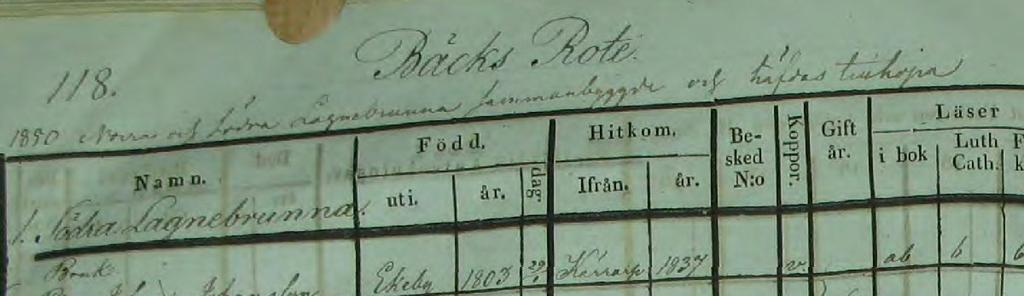 118. Bäcks Rote.
1850 Norra och Södra Lagnebrunna sammanbyggde och häfdas
Namn. Född. Hitkom. Be-sked N:o Koppor. Gift år. Läser
uti. år. dag. Ifrån. år. i bok Luth Cath.
1. Södra Lagnebrunna.
Bruk. Ekeby 1803 Kärrarp 1837 v ab b